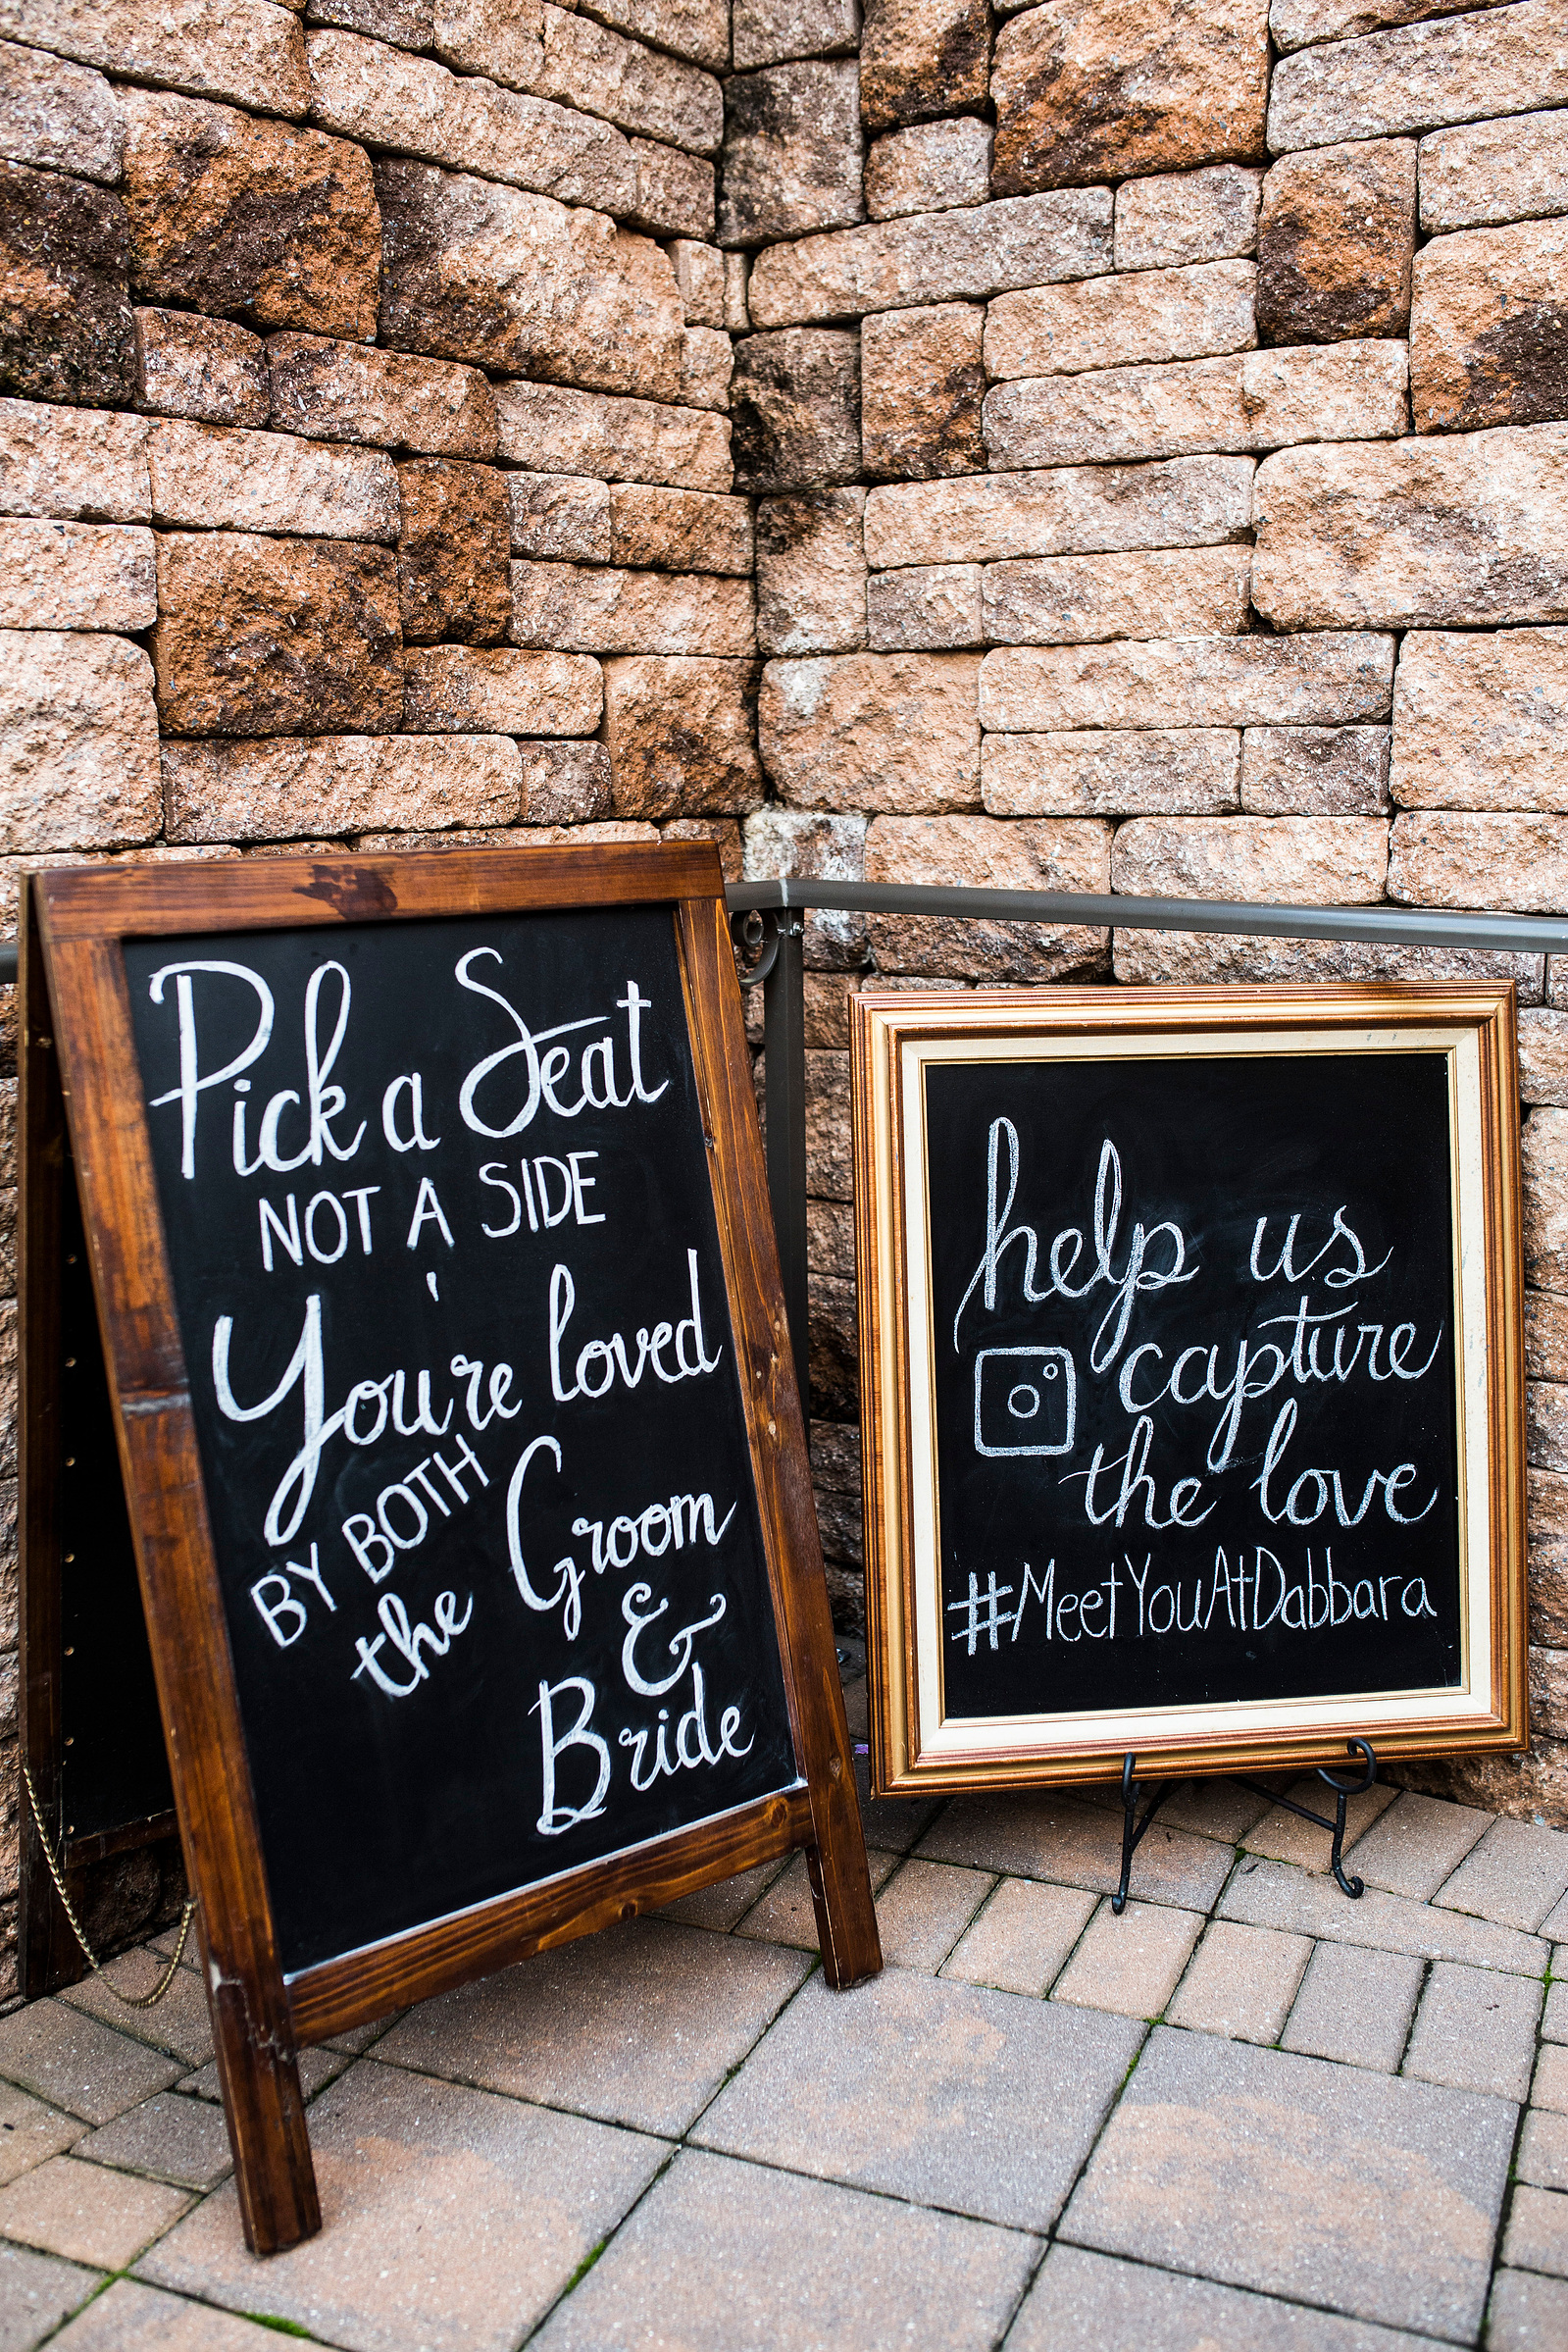 Pick a Seat
NOT A SIDE
You're loved
BY BOTH
the Groom
&
Bride
help us
capture
the love
#MeetYouAtDabbara